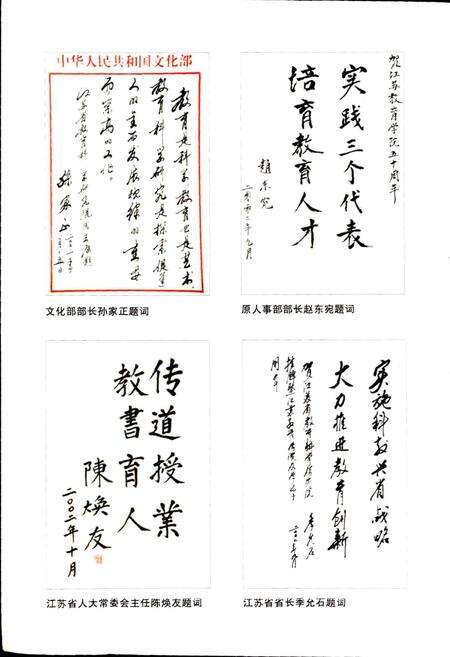 中华人民共和国文化部
教育是科学，教育也是艺术，
教育科学研究是探索促进
人的全面发展规律的重要
而崇高的工作。
孙家正
文化部部长孙家正题词
贺江苏教育学院五十周年
实践三个代表
培育教育人才
赵东宛
二〇〇二年九月
原人事部部长赵东宛题词
传道授业
教書育人
陳焕友
二〇〇二年十月
江苏省人大常委会主任陈焕友题词
实施科教兴省战略
大力推进教育创新
季允石
江苏省省长季允石题词